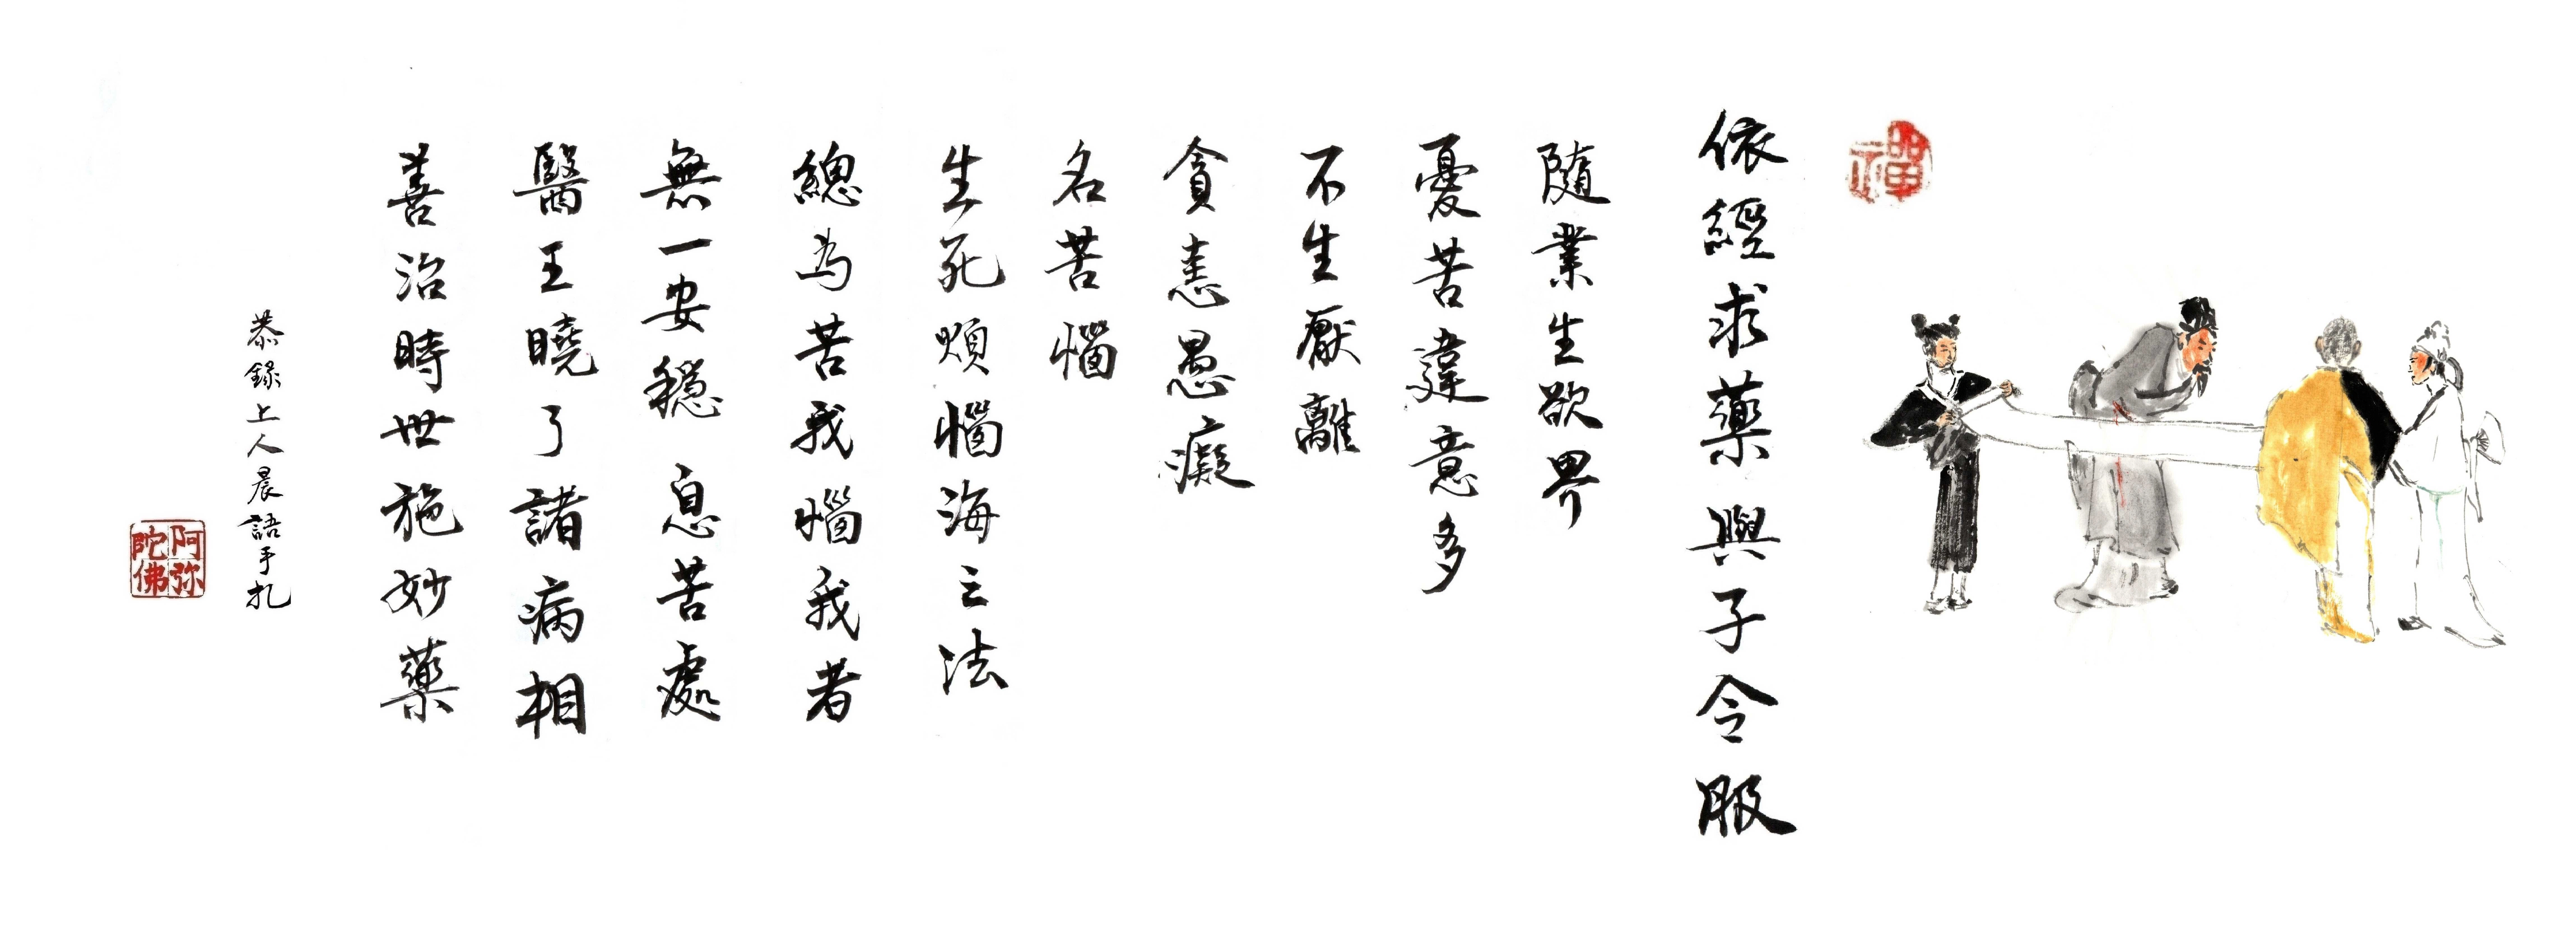 禪
依經求藥與子令服
隨業生欲界
憂苦違意多
不生厭離
貪恚愚癡
名苦惱
生死煩惱海之法
總為苦我惱我者
無一安穩 息苦處
醫王曉了諸病相
善治時世施妙藥
恭錄上人晨語手札
阿弥陀佛